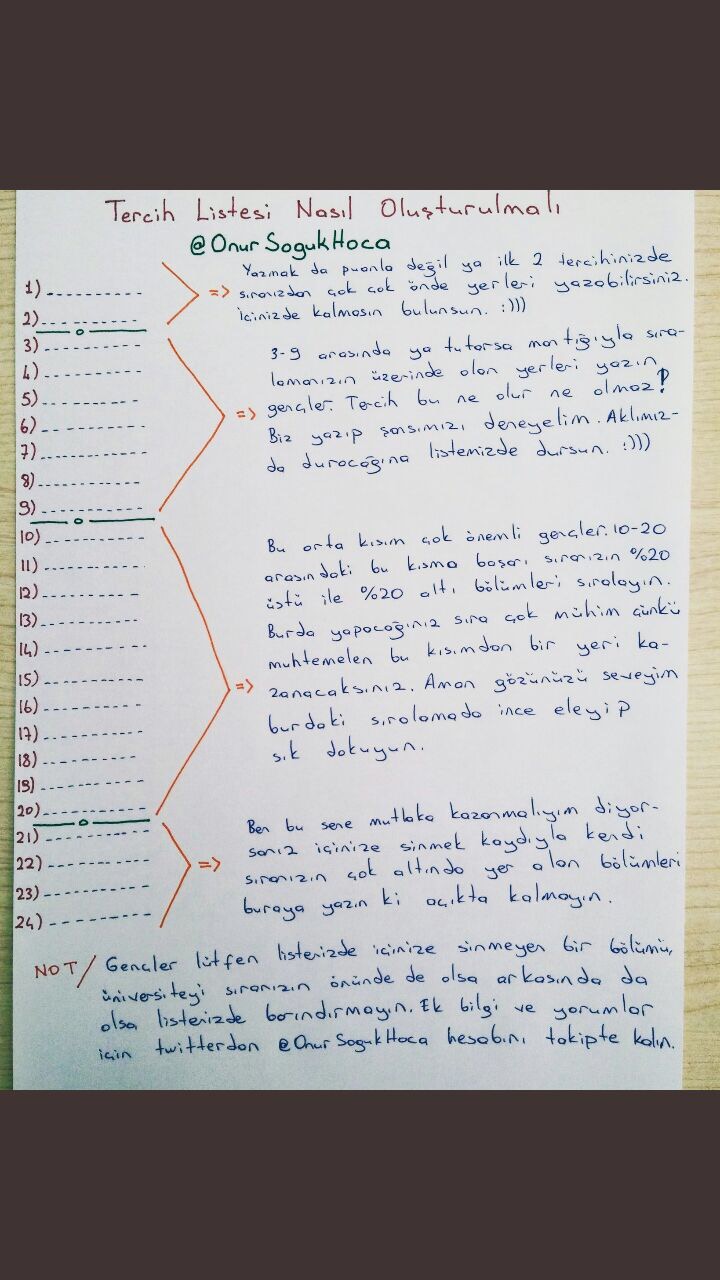 Tercih Listesi Nasıl Oluşturulmalı
@OnurSogukHoca
1)
2)
Yazmak da puanla değil ya ilk 2 tercihinizde
sıranızdan çok çok önde yerleri yazabilirsiniz.
İçinizde kalmasın bulunsun. :)))
3)
4)
5)
6)
7)
8)
9)
3-9 arasında ya tutarsa mantığıyla sıra-
lamanızın üzerinde olan yerleri yazın
gençler. Tercih bu ne olur ne olmaz?
Biz yazıp şansımızı deneyelim. Aklımız-
da duracağına listemizde dursun. :)))
10)
11)
12)
13)
14)
15)
16)
17)
18)
19)
20)
Bu orta kısım çok önemli gençler. 10-20
arasındaki bu kısma başarı sıranızın %20
üstü ile %20 altı bölümleri sıralayın.
Burda yapacağınız sıra çok mühim çünkü
muhtemelen bu kısımdan bir yeri ka-
zanacaksınız. Aman gözünüzü seveyim
burdaki sıralamada ince eleyip
sık dokuyun.
21)
22)
23)
24)
Ben bu sene mutlaka kazanmalıyım diyor-
sanız içinize sinmek kaydıyla kendi
sıranızın çok altında yer alan bölümleri
buraya yazın ki açıkta kalmayın.
NOT/ Gençler lütfen listenizde içinize sinmeyen bir bölümü,
üniversiteyi sıranızın önünde de olsa arkasında da
olsa listenizde barındırmayın. Ek bilgi ve yorumlar
için twitterdan @OnurSogukHoca hesabını takipte kalın.